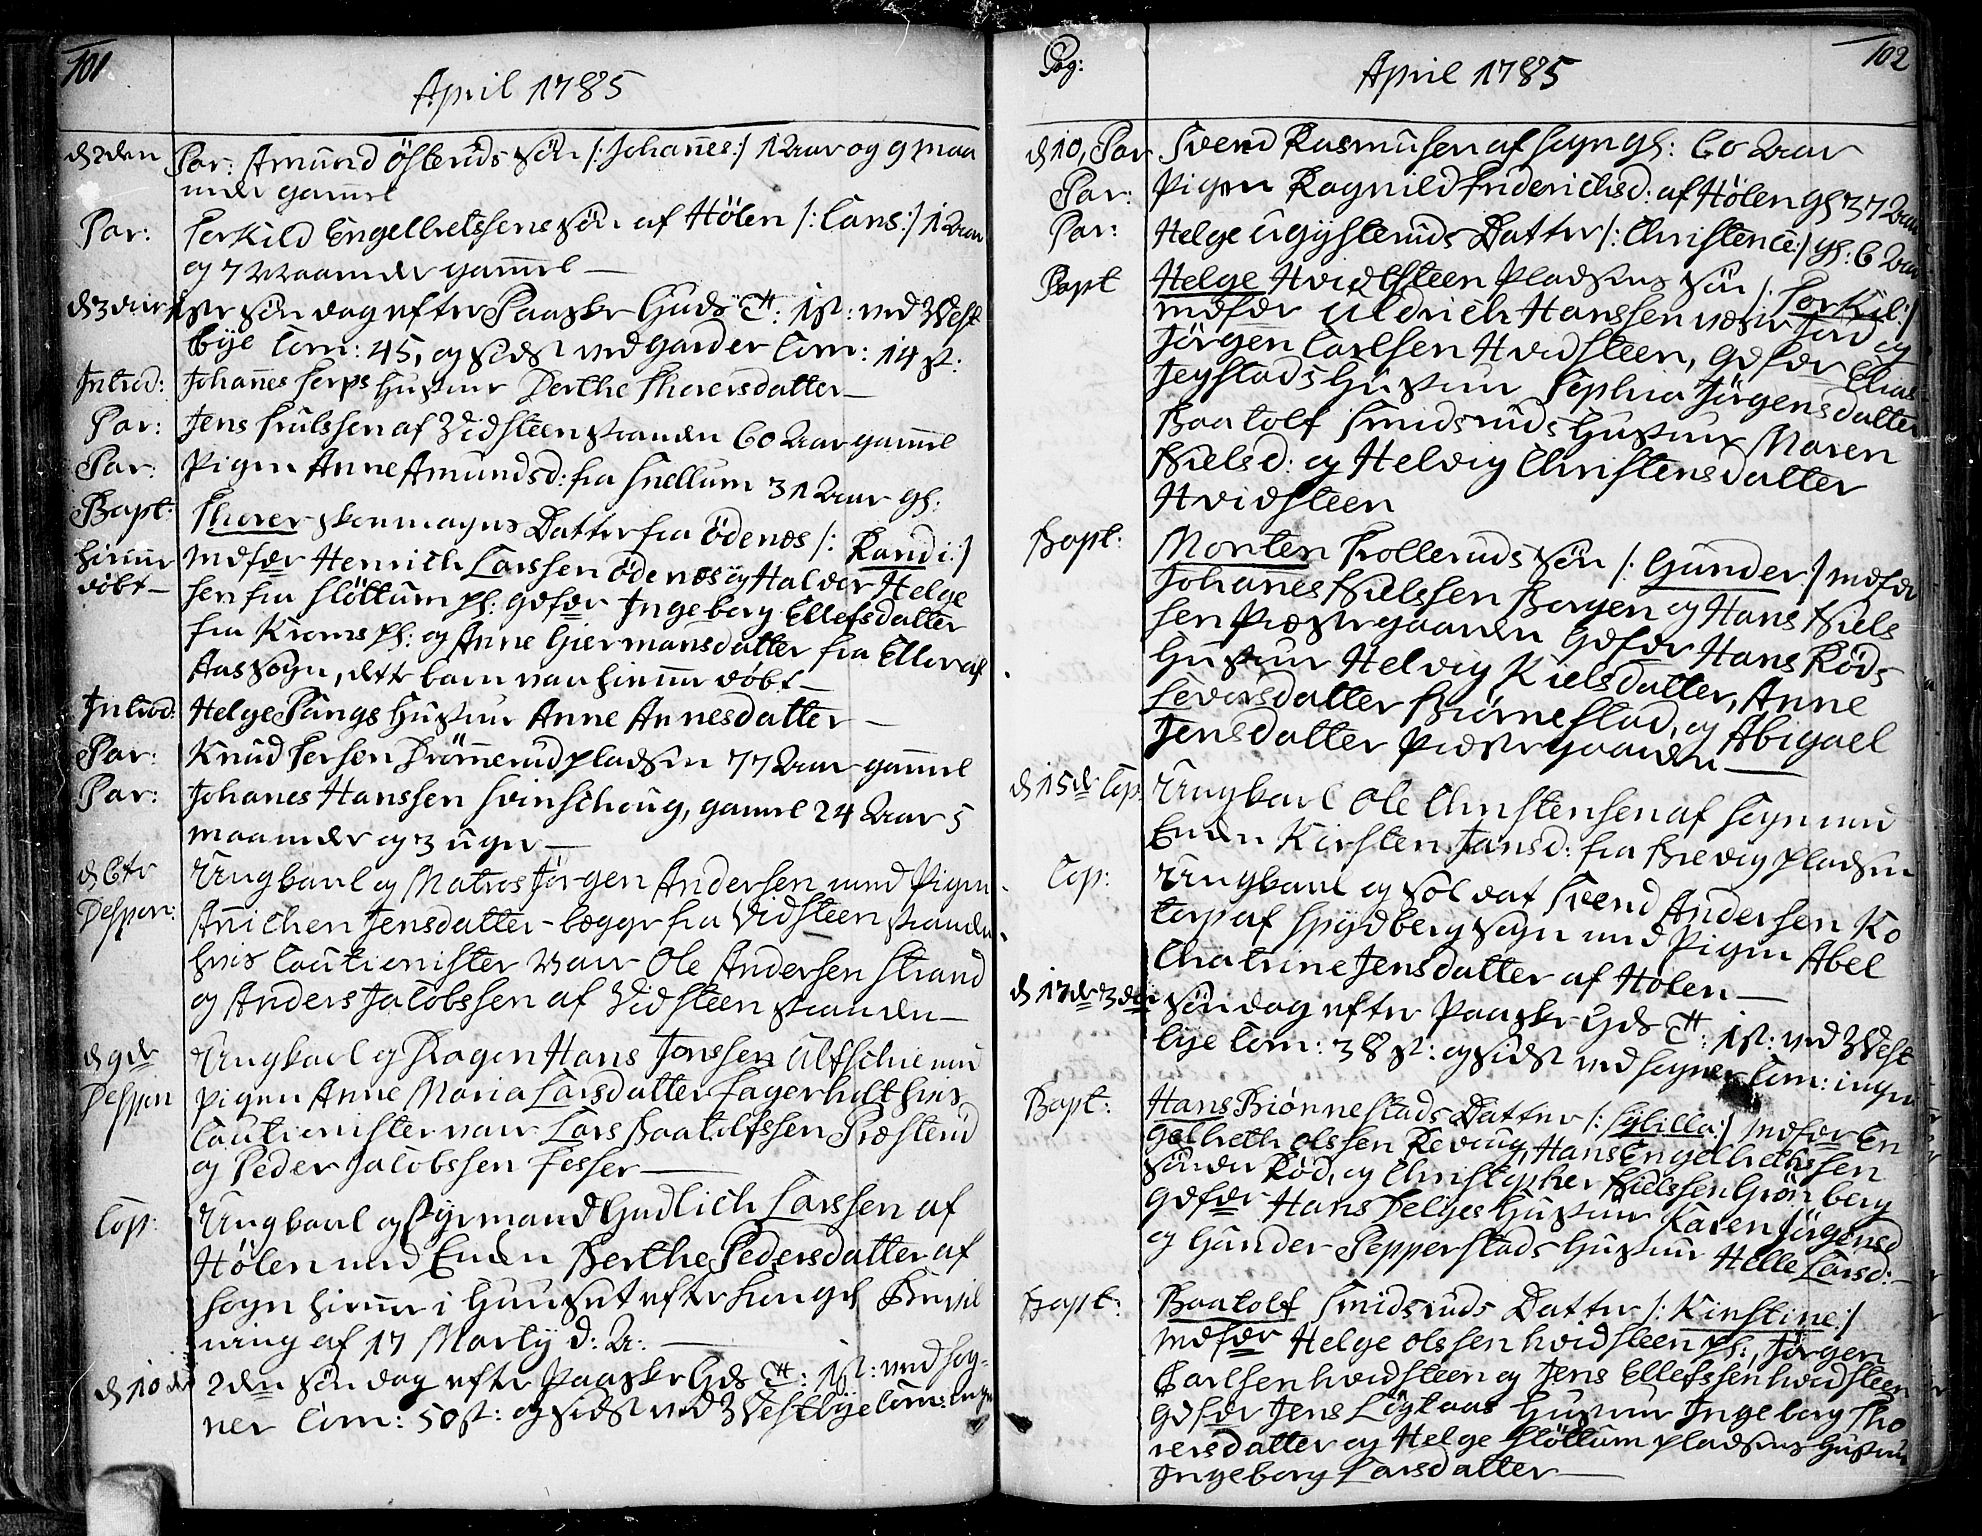 101
April 1785
d 2den Par: Amund Østeruds søn /: Johannes :/ 1 Aar og 9 Maa
neder gammel
Par: Terkild Engelbretssens søn af Hølen /: Lars :/ 1 Aar
og 7 Maaneder gammel —
d 3die 1ste søndag efter Paaske Guds Tt: 1st: ved West
bye Com: 45, og sidst ved Garder Com: 14 st:
Introd: Johannes Torps Hustrue Berthe Thoresdatter —
Par: Jens Trulssen af Widsteen stranden 60 Aar gammel
Par: Pigen Anne Amundsd: fra Snellum 31 Aar gl:
Bapt: Thorer skoemagers Datter fra Ødenes /: Randi :/
hiemme Medfær Henrich Larssen Ødenes og Halvor Helge
døbt — sen fra Sløttum pl: Gvfær Ingeborg Ellefsdatter
fra Kroms pl: og Anne Giermansdatter fra Eller af
Aas sogn, dette barn var hiemme døbt —
Introd: Helge Pungs Hustrue Anne Annesdatter —
Par: Knud Persen Drømmerud pladsen 77 Aar gammel
Par: Johanes Hanssen Svinschoug, gammel 24 Aar 5
maaneder og 3 uger —
d 6te Ungkarl og Matros Jørgen Andersen med Pigen
Despon: Anichen Jensdatter - begge fra Vidsteen stranden
hvis Cautionister var Ole Andersen Strand
og Anders Jacobssen af Vidsteen stranden —
d 9de Ungkarl og Dragon Hans Jonssen Ulfschie med
Despon pigen Anne Maria Larsdatter Fagerholt hvis
Cautionister var Lars Baatolfssen Præsterud
og Peder Jacobssen Fosser —
Cop: Ungkarl og styrmand Gudlich Larssen af
Hølen med Enken Berthe Pedersdatter af
sogn hiemme i Huuset efter Kongel Bevil
ning af 17 Martij d: A: —
d 10de 2den søndag efter Paaske Gds Tt: 1st: ved Sog-
ner Com: 50 st: og sidst ved Westbye Com: ingen
Pag: 102
April 1785
d 10, Par Svend Rasmusen af Sogn gl: 60 Aar
Par: Pigen Ragnild Friderichsd: af Hølen gl 37 Aar
Par: Helge Ugysteruds Datter /: Christence :/ gl: 6 Aar
Bapt Helge Hvidtsteen Pladsens søn /: Torkil :/
Medfær Uldrich Hanssen Jord og
Jørgen Carlsen Hvidsteen, Gvfær Elias
Jeystads Hustrue Sophia Jørgensdatter
Baatolf Smidsruds Hustrue Maren
Nielsd: og Helvig Christensdatter
Hvidsteen
Bapt: Morten Trolleruds søn /: Gunder :/ Medfær
Johanes Nielssen Borgen og Hans Niels
sen Præstegaarden Gvfær Hans Røds
Hustrue Helvig Nielsdatter, Anne
Seversdatter Biørnestad, og Abigael
Jensdatter Præstegaarden —
d 15de Cop: Ungkarl Ole Christensen af sogn med
Enken Kirsten Jansd: fra Brevig pladsen
Cop: Ungkarl og soldat Svend Andersen Ko
torp af Spydberg sogn med Pigen Abel
Chatrine Jensdatter af Hølen —
d 17de 3die søndag efter Paaske Gds Tt: 1st: ved West
bye Com: 38 st: og sidst ved Sogner Com: ingen
Bapt: Hans Biørnestads Datter /: Sybilla :/ Medfær En
gelbreth Olssen Revoug, Hans Engelbrethssen
søndre Rød, og Christopher Nielssen Grønberg
Gvfær Hans Delges Hustrue Karen Jørgensd
og Gunder Pepperstads Hustrue Helle Larsd: —
Bapt: Baatolf Smidsruds Datter /: Kirstine :/
Medfær Helge Olssen hvidsteen pl:, Jørgen
Carlsen hvidsteen og Jens Ellefssen hvidsteen
Gvfær Jens Løytaas Hustrue Ingeborg Tho
resdatter og Helge Sløttum pladsens Hustrue
Ingeborg Larsdatter —